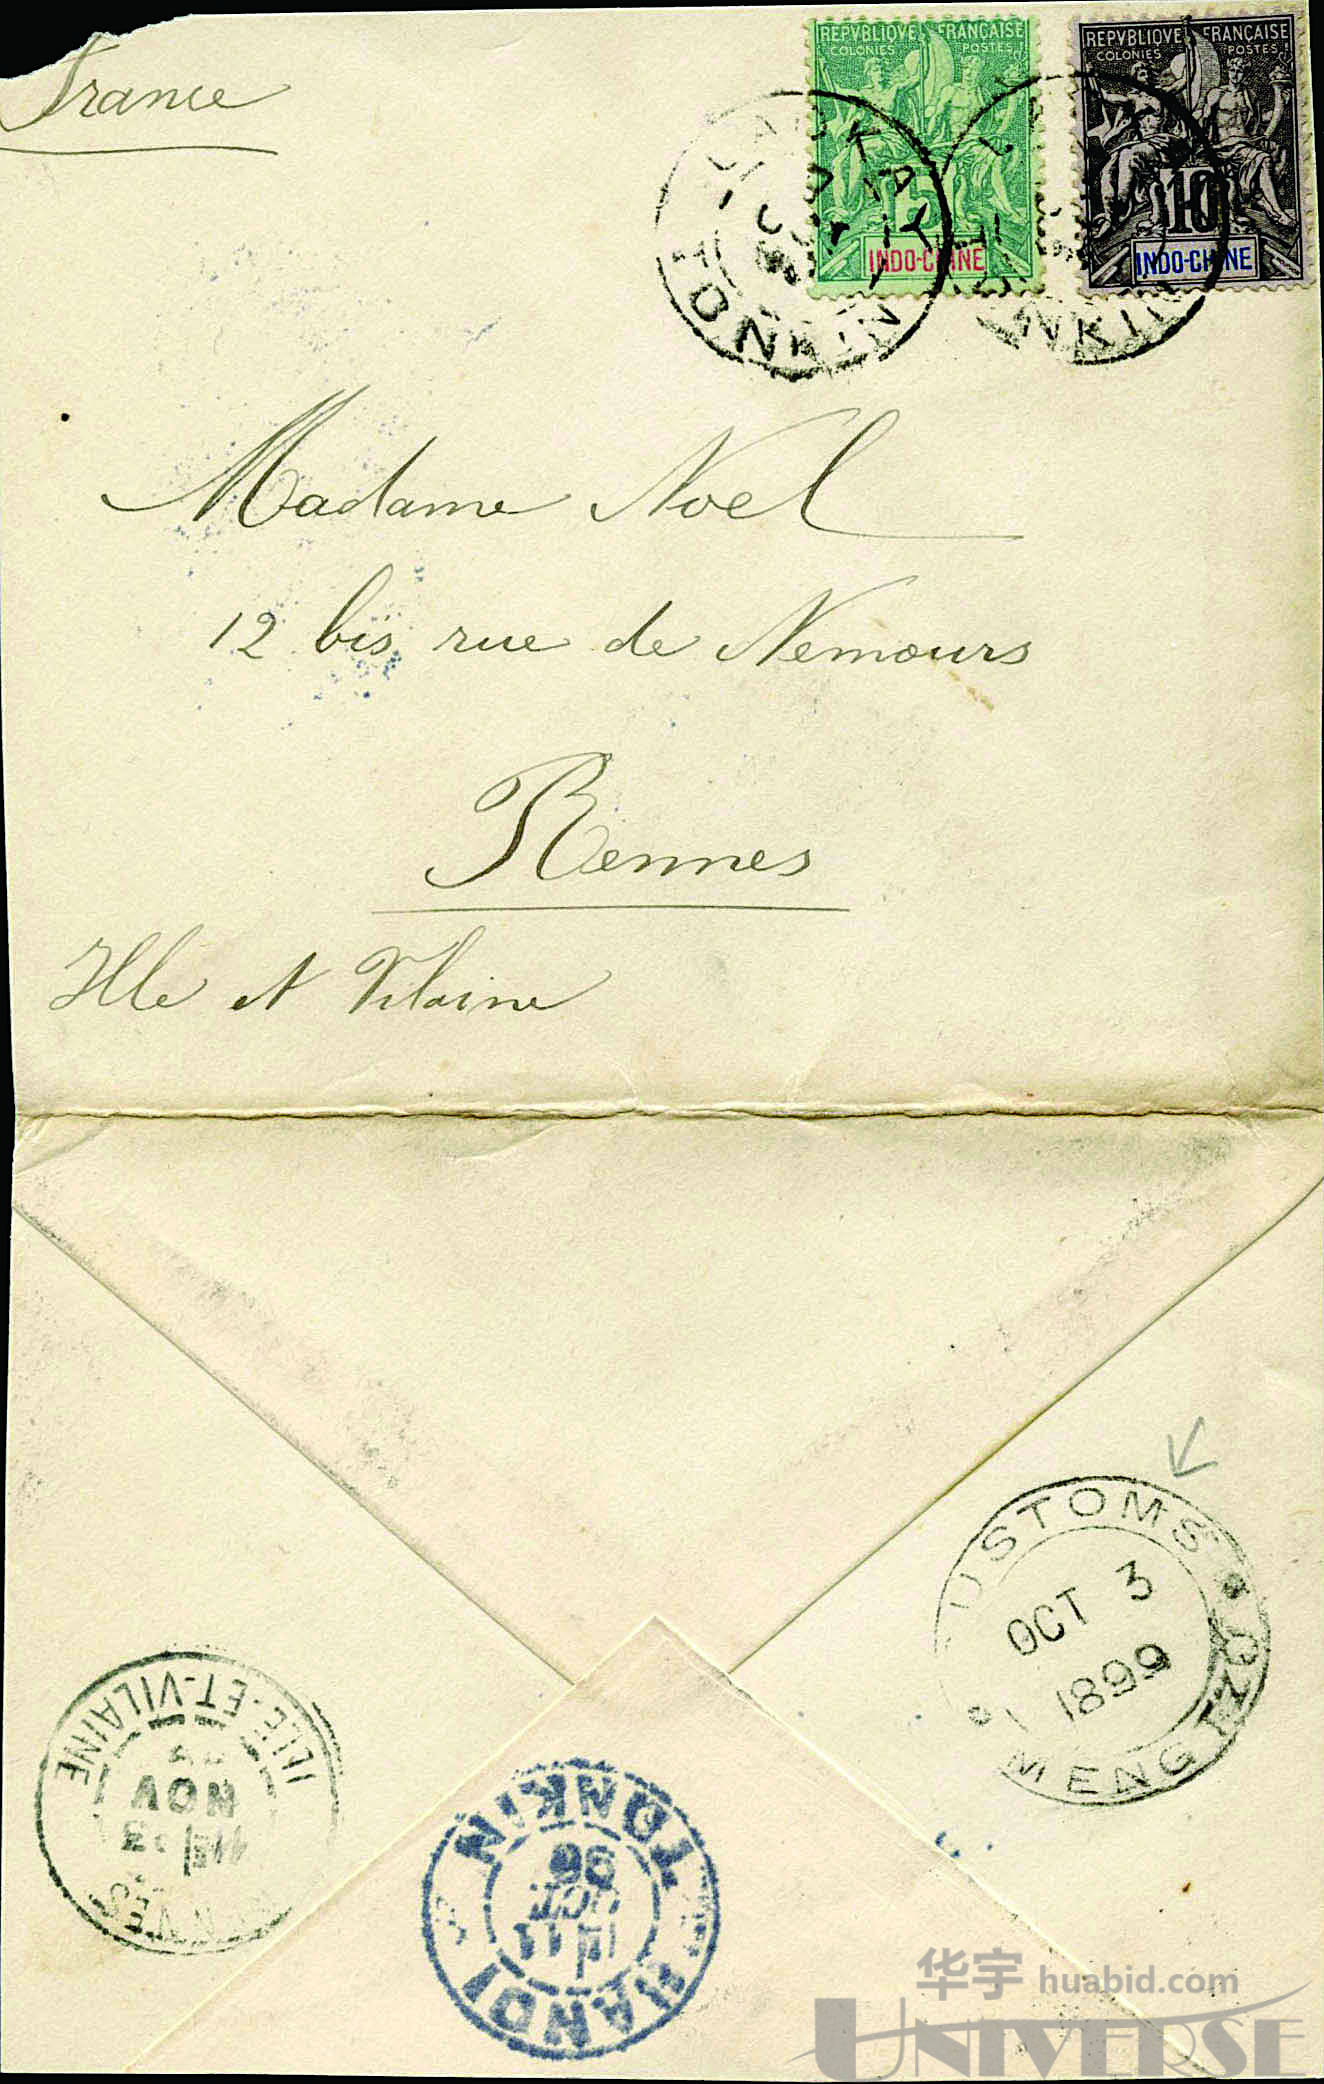 France
REPVBLIQVE FRANÇAISE
COLONIES POSTES
5
INDO-CHINE
REPVBLIQVE FRANÇAISE
COLONIES POSTES
10
INDO-CHINE
LAOKAY
TONKIN
Madame Noel
12 bis rue de Nemours
Rennes
Ille et Vilaine
USTOMS
OCT 3
1899
MENGTZ
ILLE-ET-VILAINE
NOV
TONKIN
OCT
11
HANOI
华宇 huabid.com
UNIVERSE